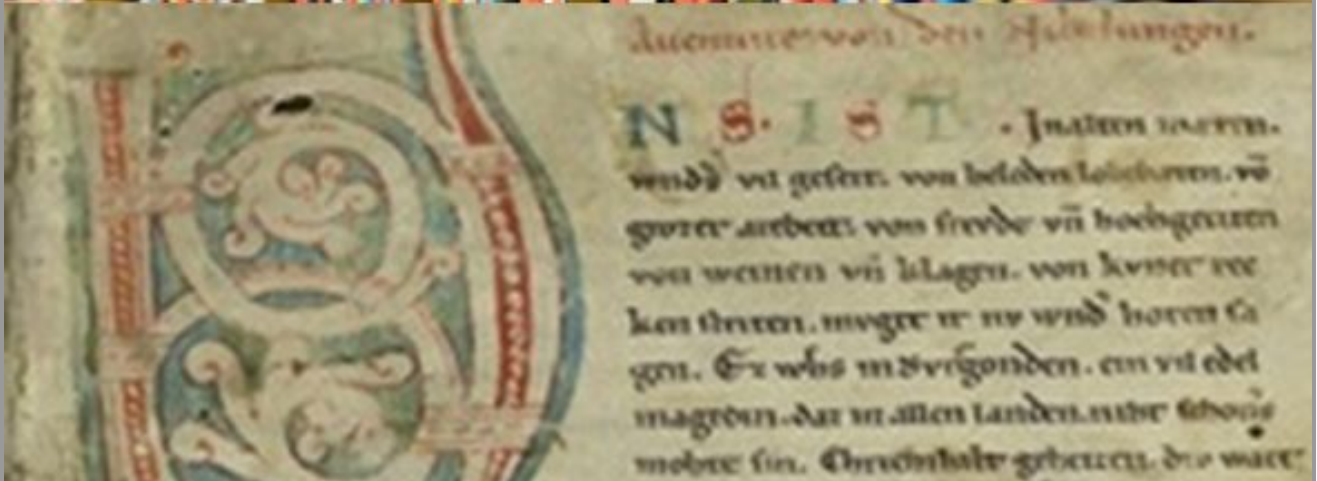 Auenture von den Nibelungen.
N S. I S T. In alten meren.
wnd vil geseit. von heleden lobebęren. vō
grozer arebeit. von frevde vn̄ hochgeciten
von weinen vn̄ klagen. von kvner rec
ken striten. mvget ir nv wnd horen sa
gen. Ez whs in Bvrgonden. ein vil edel
magedin. daz in allen landen. niht schoners
mohte sin. Chriemhilt geheizzen. div wart